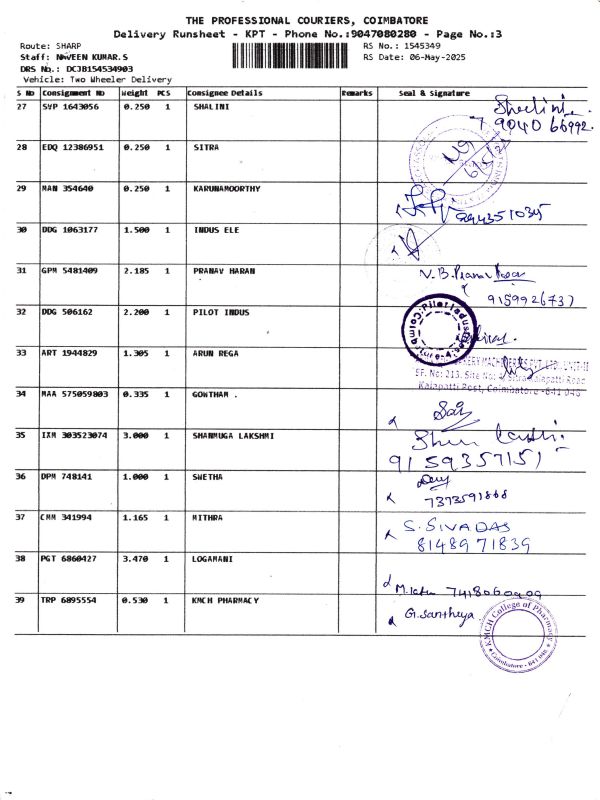 THE PROFESSIONAL COURIERS, COIMBATORE
Delivery Runsheet - KPT - Phone No.:9047080280 - Page No.:3
Route: SHARP
RS No.: 1545349
Staff: NAVEEN KUMAR.S
RS Date: 06-May-2025
DRS No.: DCJB154534903
Vehicle: Two Wheeler Delivery
S No Consignment No Weight PCS Consignee Details Remarks Seal & Signature
27 SVP 1643056 0.250 1 SHALINI
28 EDQ 12386951 0.250 1 SITRA
29 MAN 354640 0.250 1 KARUNAMOORTHY
30 DDG 1063177 1.500 1 INDUS ELE
31 GPM 5481409 2.185 1 PRANAV HARAN
9159926737
32 DDG 506162 2.200 1 PILOT INDUS
Pilot Indus
33 ART 1944829 1.305 1 ARUN REGA
SF. No: 213, Site No: 4
Kalapatti Post, Coimbatore -641 048
34 MAA 575059803 0.335 1 GOWTHAM .
35 IXM 303523074 3.000 1 SHANMUGA LAKSHMI
9159357151
36 DPM 748141 1.000 1 SWETHA
7373591868
37 CMM 341994 1.165 1 MITHRA
S. SIVADAS
8148971839
38 PGT 6860427 3.470 1 LOGAMANI
39 TRP 6895554 0.530 1 KMCH PHARMACY
G. Santhiya
KMCH College of Pharmacy
Coimbatore - 641 048